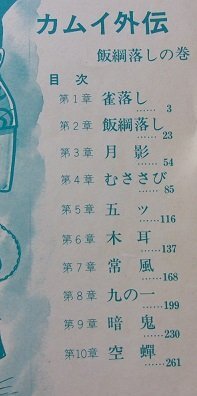 カムイ外伝
飯綱落しの巻
目次
第1章 雀落し……3
第2章 飯綱落し……23
第3章 月影……54
第4章 むささび……85
第5章 五ッ……116
第6章 木耳……137
第7章 常風……168
第8章 九の一……199
第9章 暗鬼……230
第10章 空蟬……261